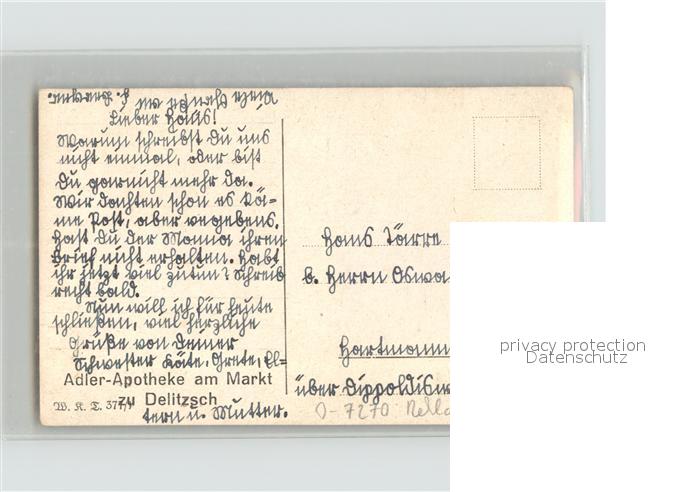 Lieber Hans!
Warum schreibst Du uns
nicht einmal, oder bist
Du garnicht mehr da.
Wir dachten schon es kä-
me Post, aber vegebens.
Hast Du der Manna ihren
Brief nicht erhalten. Habt
ihr jetzt viel zutun? Schreib
recht bald.
Nun will ich für heute
schließen, viel herzliche
Grüße von Deiner
Schwester Käte, Grete, El-
tern u. Mutter.
Adler-Apotheke am Markt
zu Delitzsch
W. K. T.
Hans Tärre
b. Herrn Oswa
Hartmann
über Dippoldisw
D-7270
privacy protection
Datenschutz